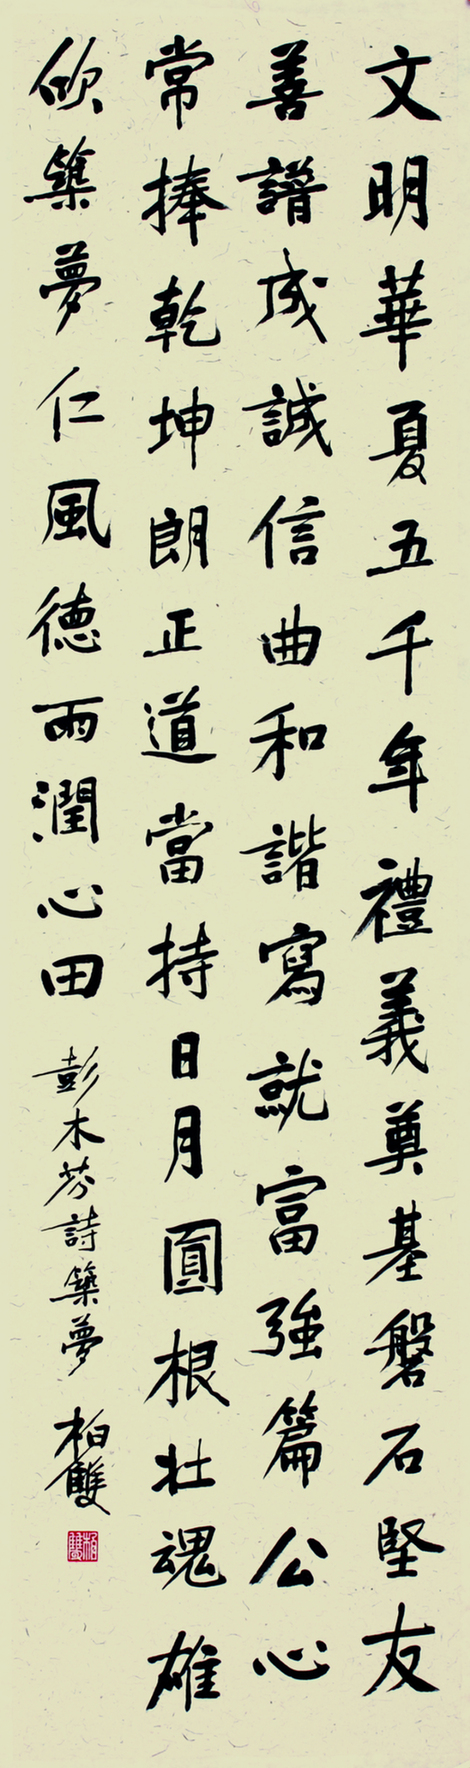 文明華夏五千年禮義奠基磐石堅友
善譜成誠信曲和諧寫就富強篇公心
常捧乾坤朗正道當持日月圓根壯魂雄
欣築夢仁風德雨潤心田
彭木芬詩築夢 柏雙
柏雙